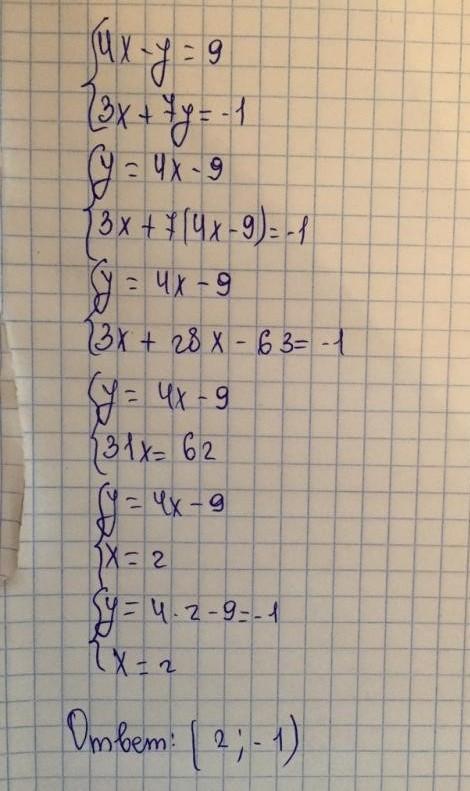 4x - y = 9
3x + 7y = -1
y = 4x - 9
3x + 7(4x - 9) = -1
y = 4x - 9
3x + 28x - 63 = -1
y = 4x - 9
31x = 62
y = 4x - 9
x = 2
y = 4 · 2 - 9 = -1
x = 2
Ответ: (2; -1)